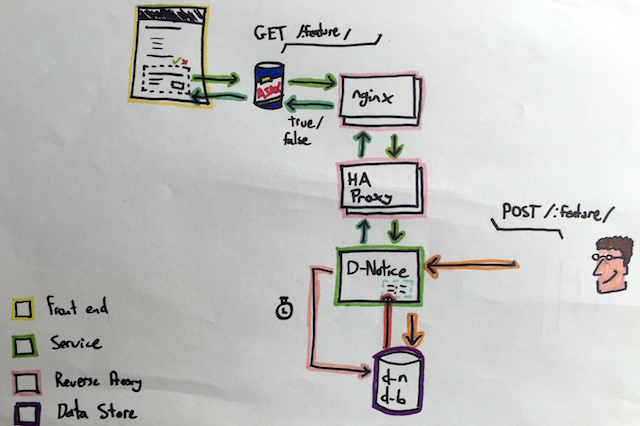 GET /:feature/
nginx
true/
false
HA
Proxy
POST /:feature/
D-Notice
Front end
Service
Reverse Proxy
Data Store
d-n
d-b